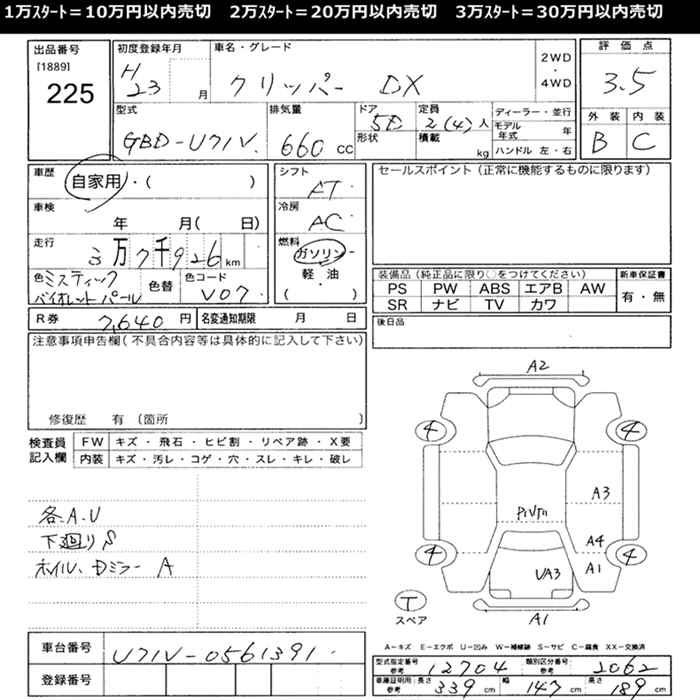 1万ｽﾀｰﾄ＝10万円以内売切　2万ｽﾀｰﾄ＝20万円以内売切　3万ｽﾀｰﾄ＝30万円以内売切
出品番号
[1889]
225
初度登録年月
H
23 月
車名・グレード
クリッパー DX
2WD
・
4WD
評価点
3.5
外装 内装
B C
型式
GBD-U71V.
排気量
660 CC
ドア
5D
形状
定員
2(4)人
積載
kg
ディーラー・並行
モデル年式 年
ハンドル 左・右
車歴
自家用・( )
車検
年 月( 日)
走行
3万7千926km
色 ミスティック
バイオレットパール
色替
色コード
V07.
シフト
AT
冷房
AC
燃料
ガソリン・
軽・油
( )
セールスポイント（正常に機能するものに限ります）
装備品（純正品に限り○をつけてください）
PS PW ABS エアB AW
SR ナビ TV カワ
新車保証書
有・無
R券 7,640 円
名変通知期限 月 日
後日品
注意事項申告欄(不具合内容等は具体的に記入して下さい)
修復歴 有（箇所
検査員
記入欄
FW キズ・飛石・ヒビ割・リペア跡・X要
内装 キズ・汚レ・コゲ・穴・スレ・キレ・破レ
各.A.U
下廻りS
ホイル、Dミラー A
A2
4 4
A3
A4
4 4
UA3
A1
T
スペア
A1
A－キズ E－エクボ U－凹み W－補修跡 S－サビ C－腐食 XX－交換済
車台番号 U71V-0561391.
登録番号
型式指定番号 参考 12704
類別区分番号 参考 2062
車庫証明用 参考 長さ 339 cm 幅 147 cm 高さ 189 cm